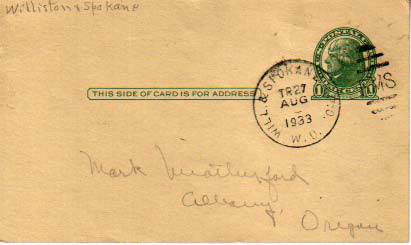 Williston & Spokane
U·S·POSTAGE
THIS SIDE OF CARD IS FOR ADDRESS
1 1
WILL. & SPOKANE
TR27
AUG
1933
W.D.
MS
Mark Weatherford
Albany,
Oregon